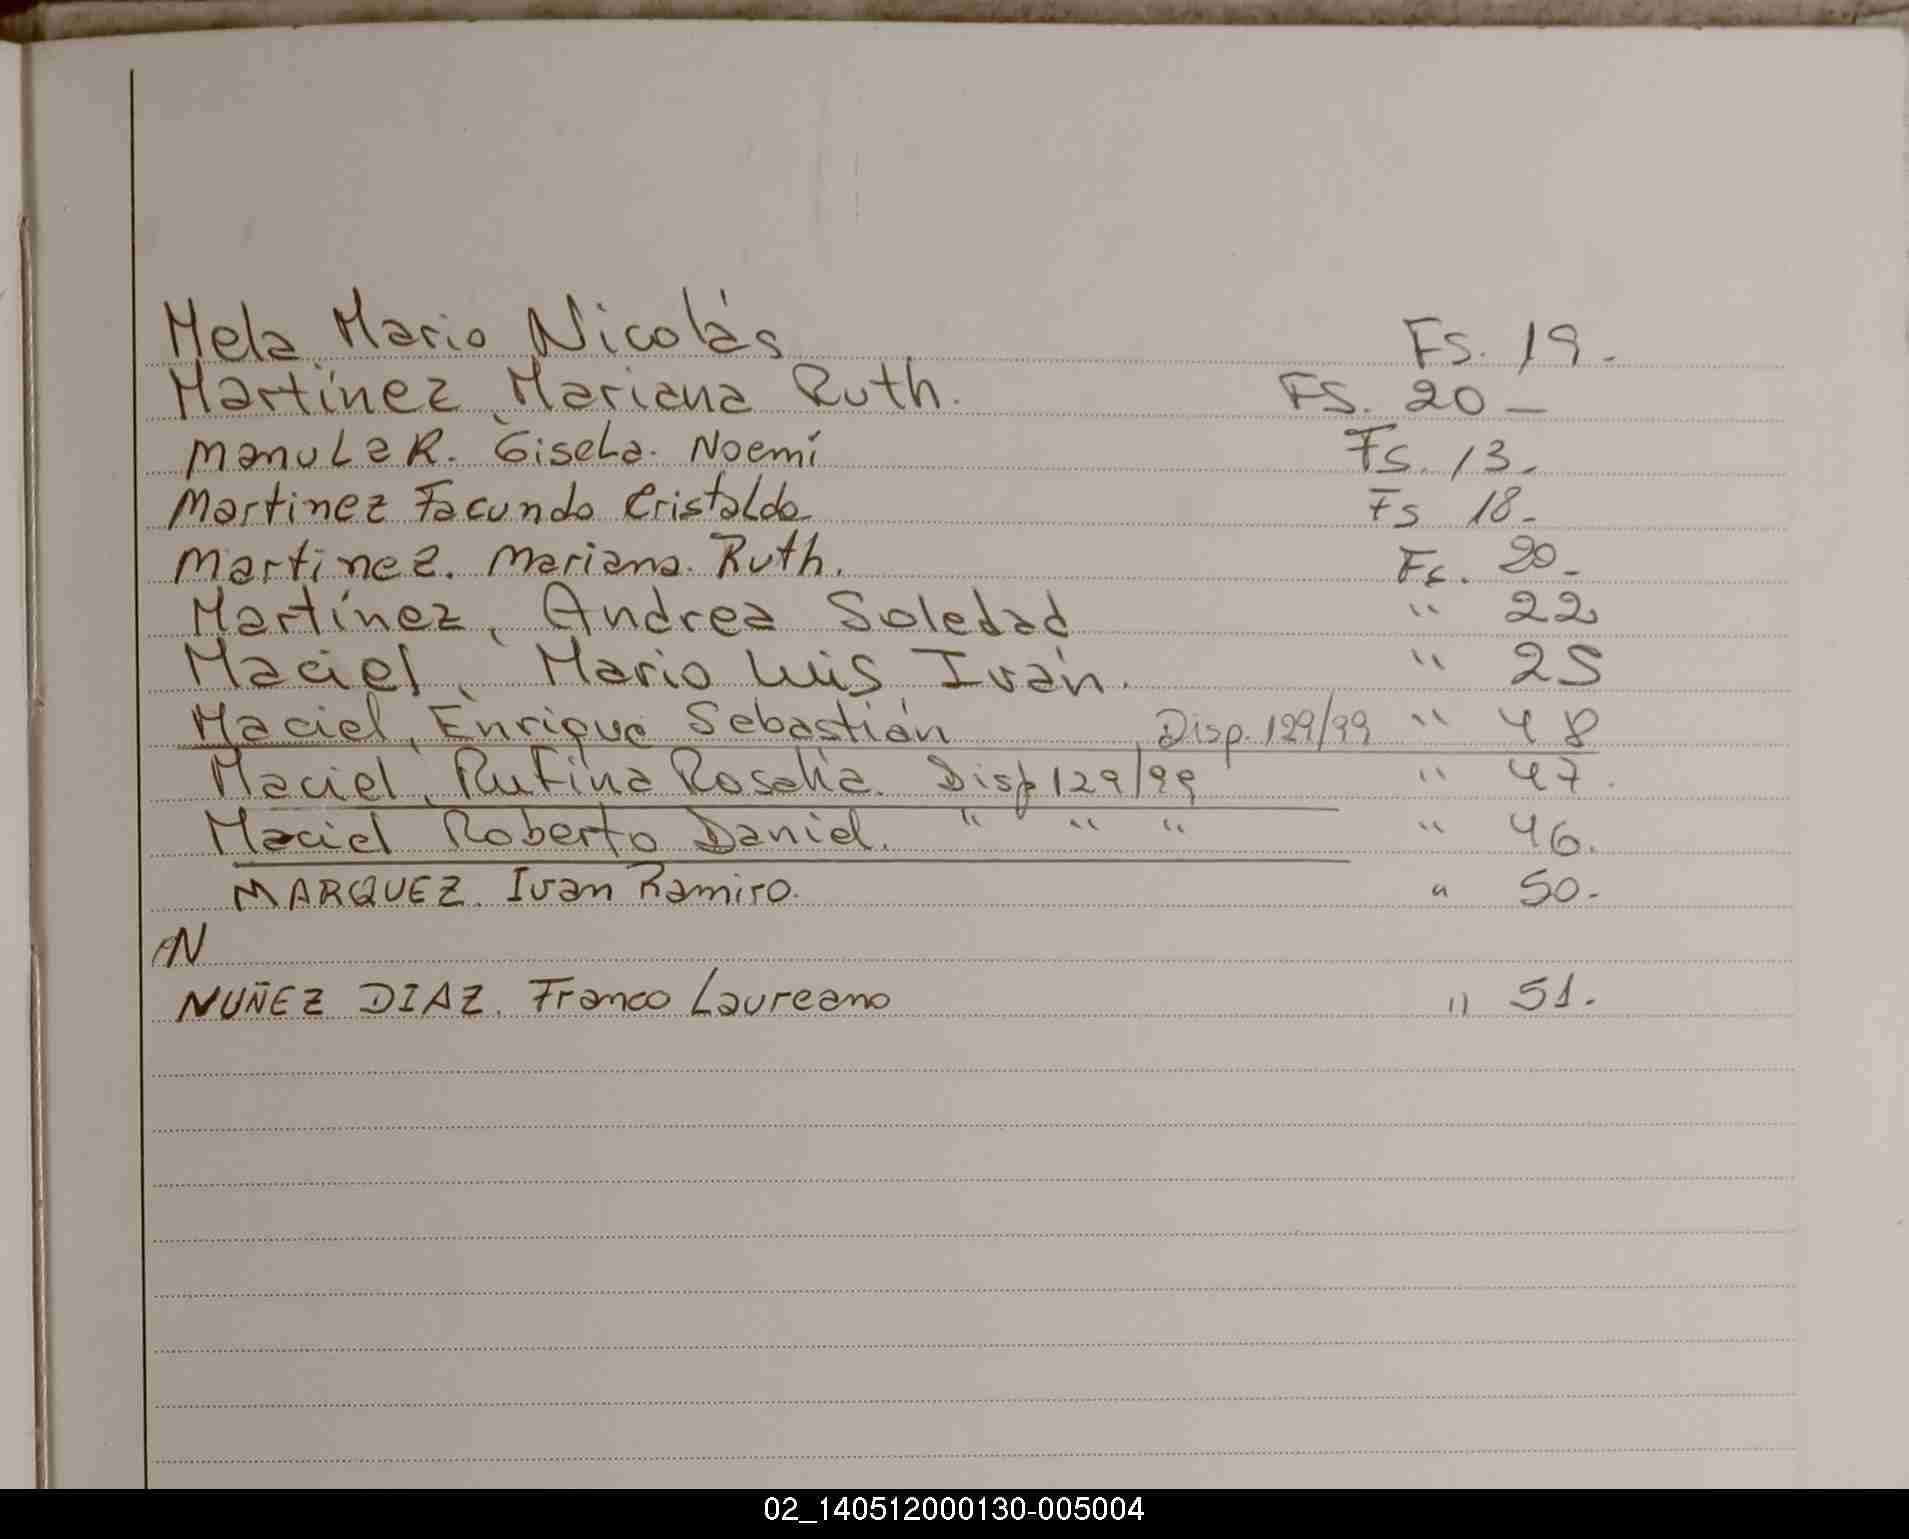 Mela Mario Nicolás Fs. 19.
Martínez, Mariana Ruth. FS. 20 —
ManuLaR. GiseLa. Noemí Fs. 13.
Martinez Facundo Cristaldo Fs 18.
Martinez. Mariana. Ruth. Fs. 20.
Martínez, Andrea Soledad " 22
Maciel, Mario Luis Iván. " 25
Maciel, Enrique Sebastián Disp. 129/99 " 48
Maciel, Rufina Rosalia. Disp 129/99 " 47.
Maciel Roberto Daniel. " " " " 46.
MARQUEZ. Ivan Ramiro. " 50.
N
NUÑEZ DIAZ. Franco Laureano " 51.
02_140512000130-005004